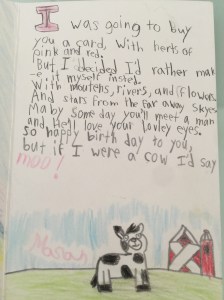 I was going to buy
you a card, with herts of
pink and red.
But I decided I'd rather mak
-e if myself insted.
With moutens, rivers, and flowers,
And stars from the far away skyes
Maby some day you'll meet a man
and, He'll love your lovley eyes.
so happy birth day to you,
but if I were a cow I'd say
moo!